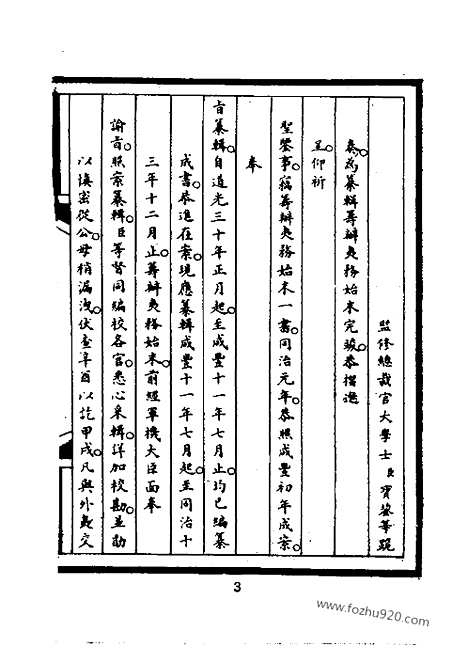 監修總裁官大學士臣寶鋆等跪
奏為纂輯籌辦夷務始末完竣恭摺進
呈仰祈
聖鑒事竊籌辦夷務始末一書同治元年恭照咸豐初年成案
奉
旨纂輯自道光三十年正月起至咸豐十一年七月止均已編纂
成書恭進在案現應纂輯咸豐十一年七月起至同治十
三年十二月止籌辦夷務始末前經軍機大臣面奉
諭旨照案纂輯臣等督同編校各官悉心采輯詳加校勘並勖
以慎密從公毋稍漏洩伏查辛酉以訖甲戌凡與外夷交
3
www.fozhu920.com